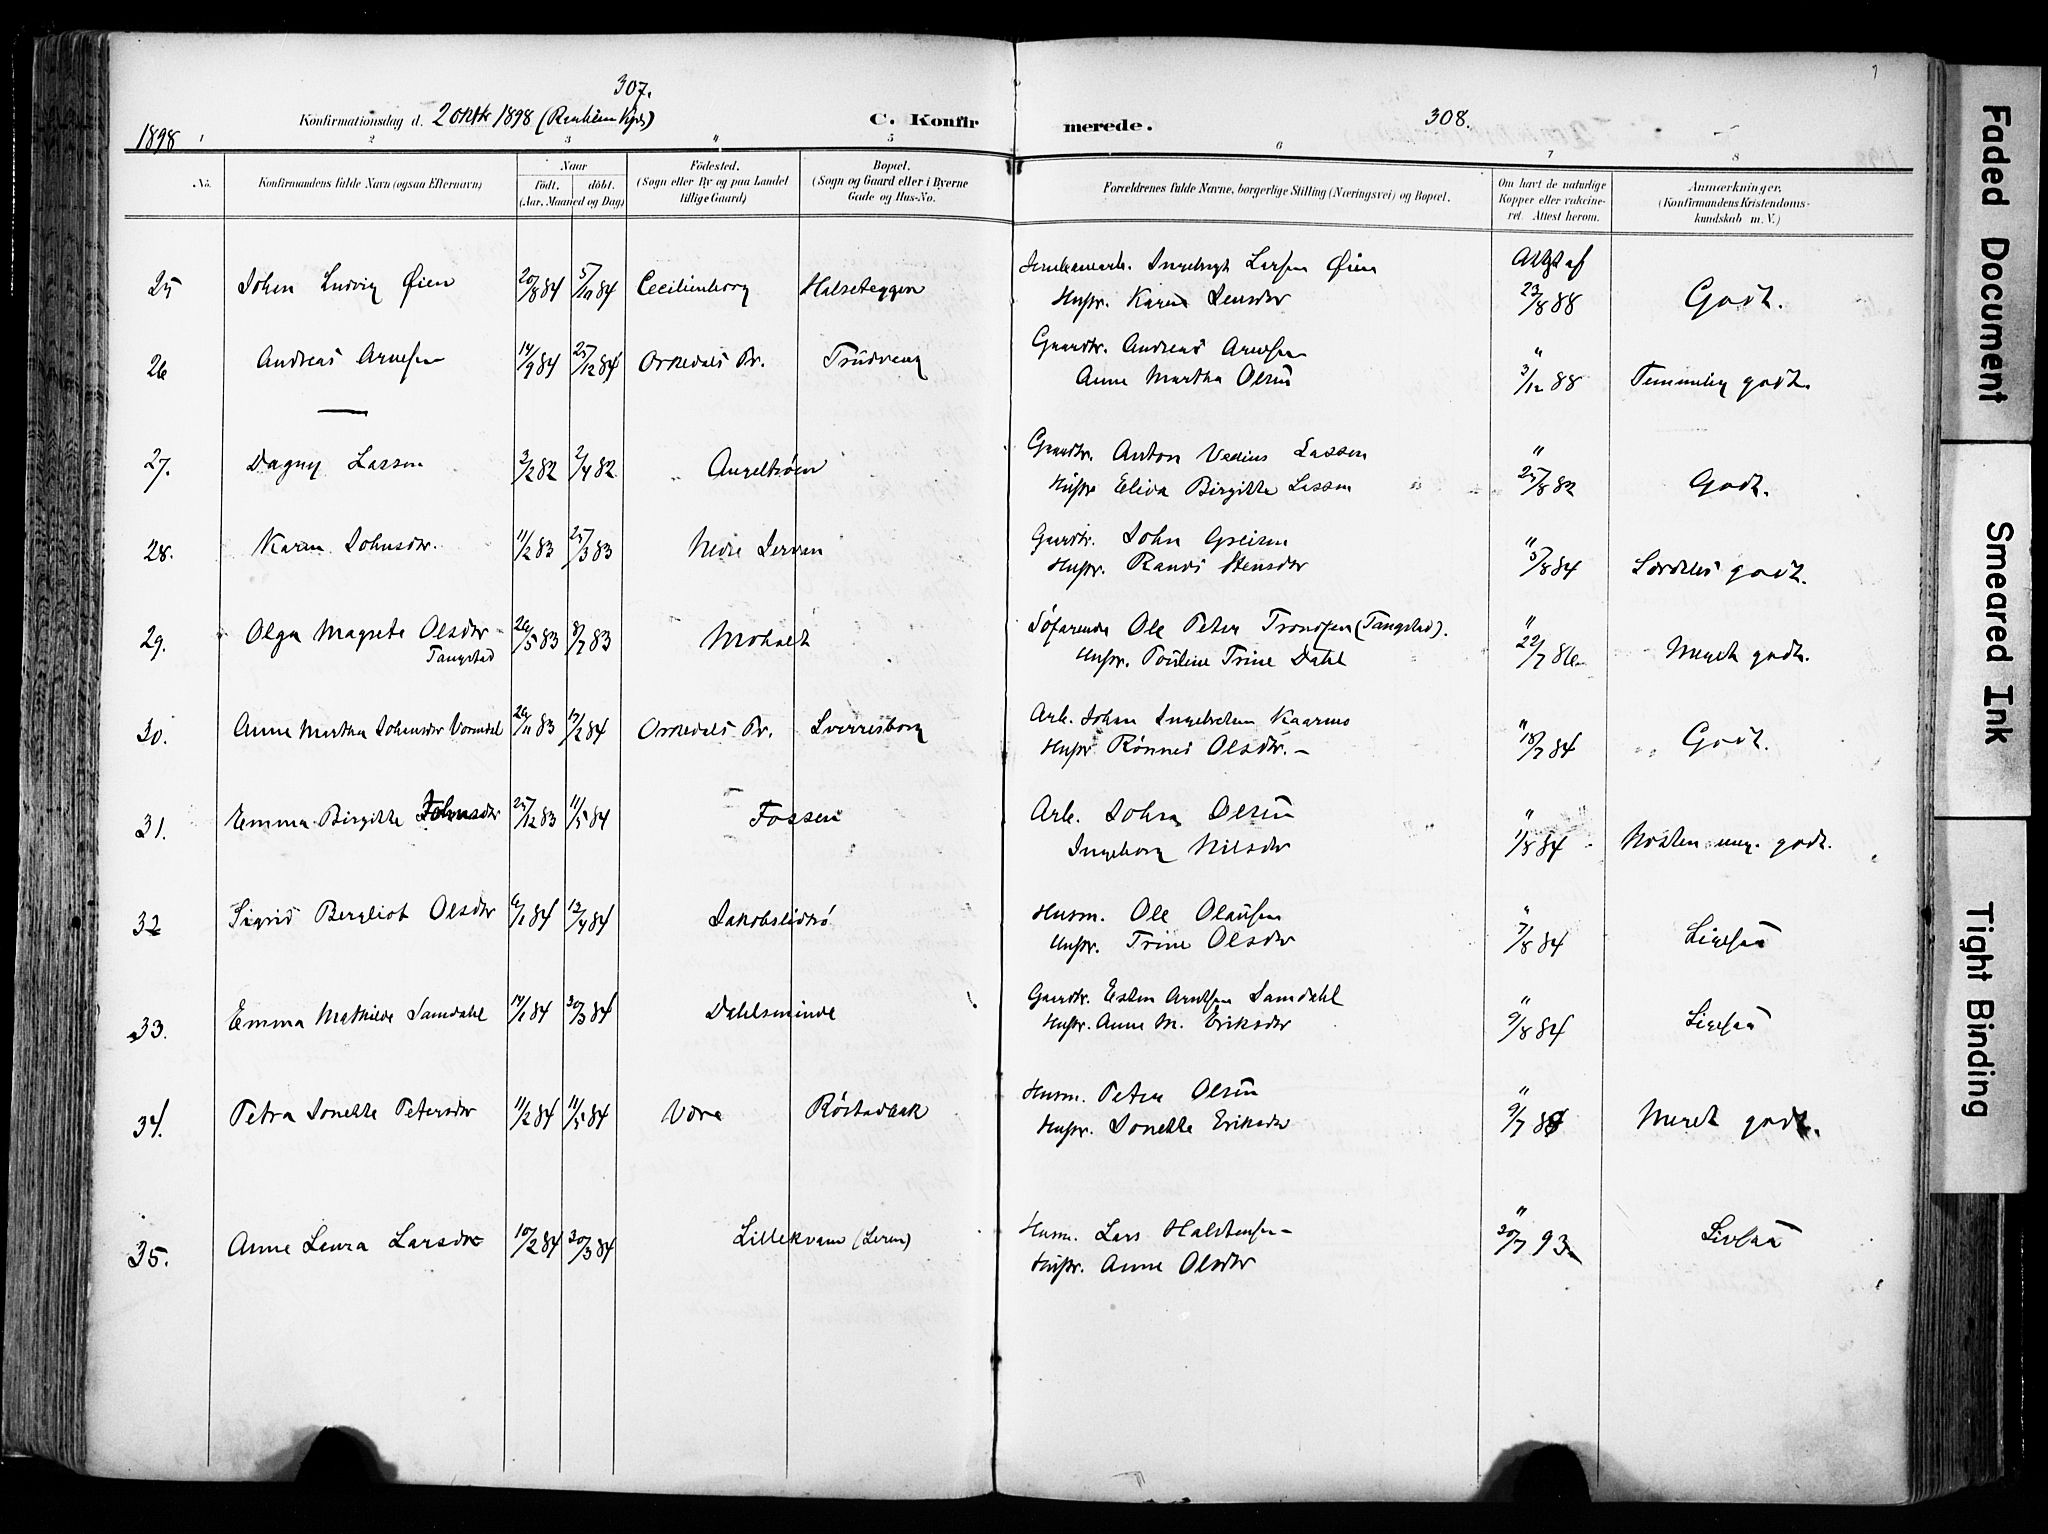 307.
308.
1898
Konfirmationsdag d. 2 oktbr 1898
C. Konfirmerede.
1 2 3 4 5 6 7 8
No.
Konfirmandens fulde Navn (ogsaa Efternavn)
Naar
födt.
döbt.
(Aar, Maaned og Dag)
Födested.
(Sogn eller By og paa Landet
tillige Gaard)
Bopæl.
(Sogn og Gaard eller i Byerne
Gade og Hus-No.
Forældrenes fulde Navne, borgerlige Stilling (Næringsvei) og Bopæl.
Om havt de naturlige
Kopper eller vakcine-
ret. Attest herom.
Anmærkninger.
(Konfirmandens Kristendoms-
kundskab m. V.)
25 Johan Ludvig Øien 20/8 84 5/10 84 Cecilienborg Halseteggen Ingebrigt Larsen Øien Attst af
Hustr. Karen Jensdtr 23/8 88 Godt.
26 Andreas Arnesen 14/9 84 25/12 84 Orkedals Pr. Trudvang Gaardbr. Andreas Arnesen "
Anne Martha Olsen 3/12 88 Temmelig godt.
27. Dagny Lassen 3/2 82 2/4 82 Angeltrøen Gaardbr. Anton Vedius Lassen "
Hustr Elisa Birgitte Lassen 25/8 82 Godt.
28. Karen Johnsdtr. 11/2 83 25/3 83 Nedre Jervan Gaardbr. John "
Hustr. Randi Stensdtr 5/8 84 Særdeles godt.
29. Olga Magrete Olsdtr 26/5 83 8/7 83 Moholt Söfarende Ole Peter Trondsen (Tangstad). "
Tangstad Hustr. Pouline Trine Dahl 22/7 86 Meget godt.
30. Anne Martha Johnsdtr Vormdal 26/11 83 17/2 84 Orkedals Pr. Sverresborg Arb. Johan Ingebretsen Kaarmo "
Hustr Rønnei Olsdtr. - 18/7 84 Godt.
31. Emma Birgitte Johnsdtr 25/12 83 11/5 84 Fossen Arb. John Olsen "
Ingeborg Nilsdtr 1/8 84 Næsten meg. godt.
32 Sigrid Bergliot Olsdtr 6/1 84 13/4 84 Jakobslidtrø Husm. Ole Olausen "
Hustr. Trine Olsdtr 7/8 84 Ligesaa
33. Emma Mathilde Samdahl 14/1 84 30/3 84 Dahlsminde Gaardbr. Esten Arntsen Samdahl "
Hustr. Anne M. Eriksdtr 9/8 84 Ligesaa
34. Petra Jonette Petersdtr 11/2 84 11/5 84 Vore Röstadbak Husm. Peter Olsen "
Hustr. Jonette Eriksdtr 9/7 88 Meget godt.
35. Anne Laura Larsdtr 10/2 84 30/3 84 Lillekvam (Leren) Husm. Lars Halstensen - "
Hustr. Anne Olsdtr 20/7 93 Ligesaa
Faded Document
Smeared Ink
Tight Binding